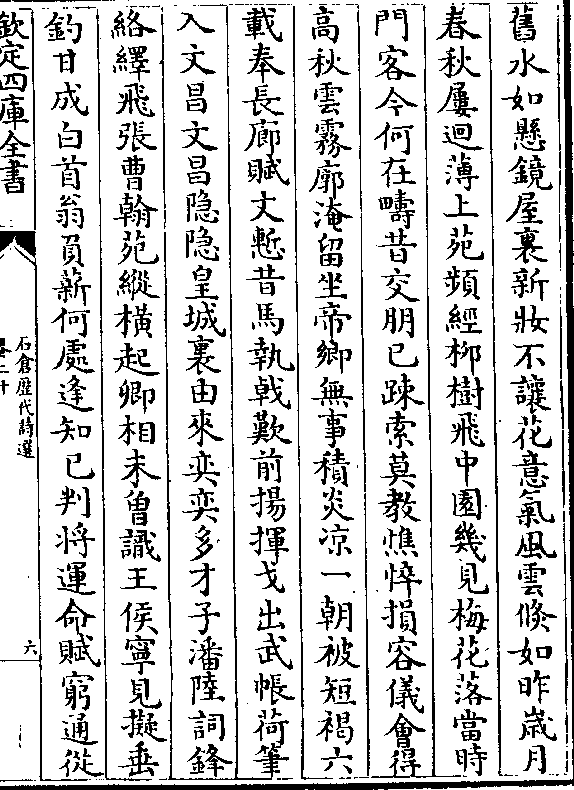 舊水如懸鏡屋裏新妝不讓花意氣風雲倏如昨歳月
春秋屢迴薄上苑頻經柳樹飛中園幾見梅花落當時
門客今何在疇昔交朋已疎索莫教憔悴損容儀會得
高秋雲霧廓淹留坐帝鄉無事積炎凉一朝被短褐六
載奉長廊賦文慙昔馬執㦸歎前揚揮戈出武帳荷筆
入文昌文昌隠隠皇城裏由來奕奕多才子潘陸詞鋒
絡繹飛張曹翰苑縱横起卿相未曾識王侯寧見擬垂
釣甘成白首翁負薪何處逢知已判將運命賦窮通從
欽定四庫全書
石倉歴代詩選
卷二十
六